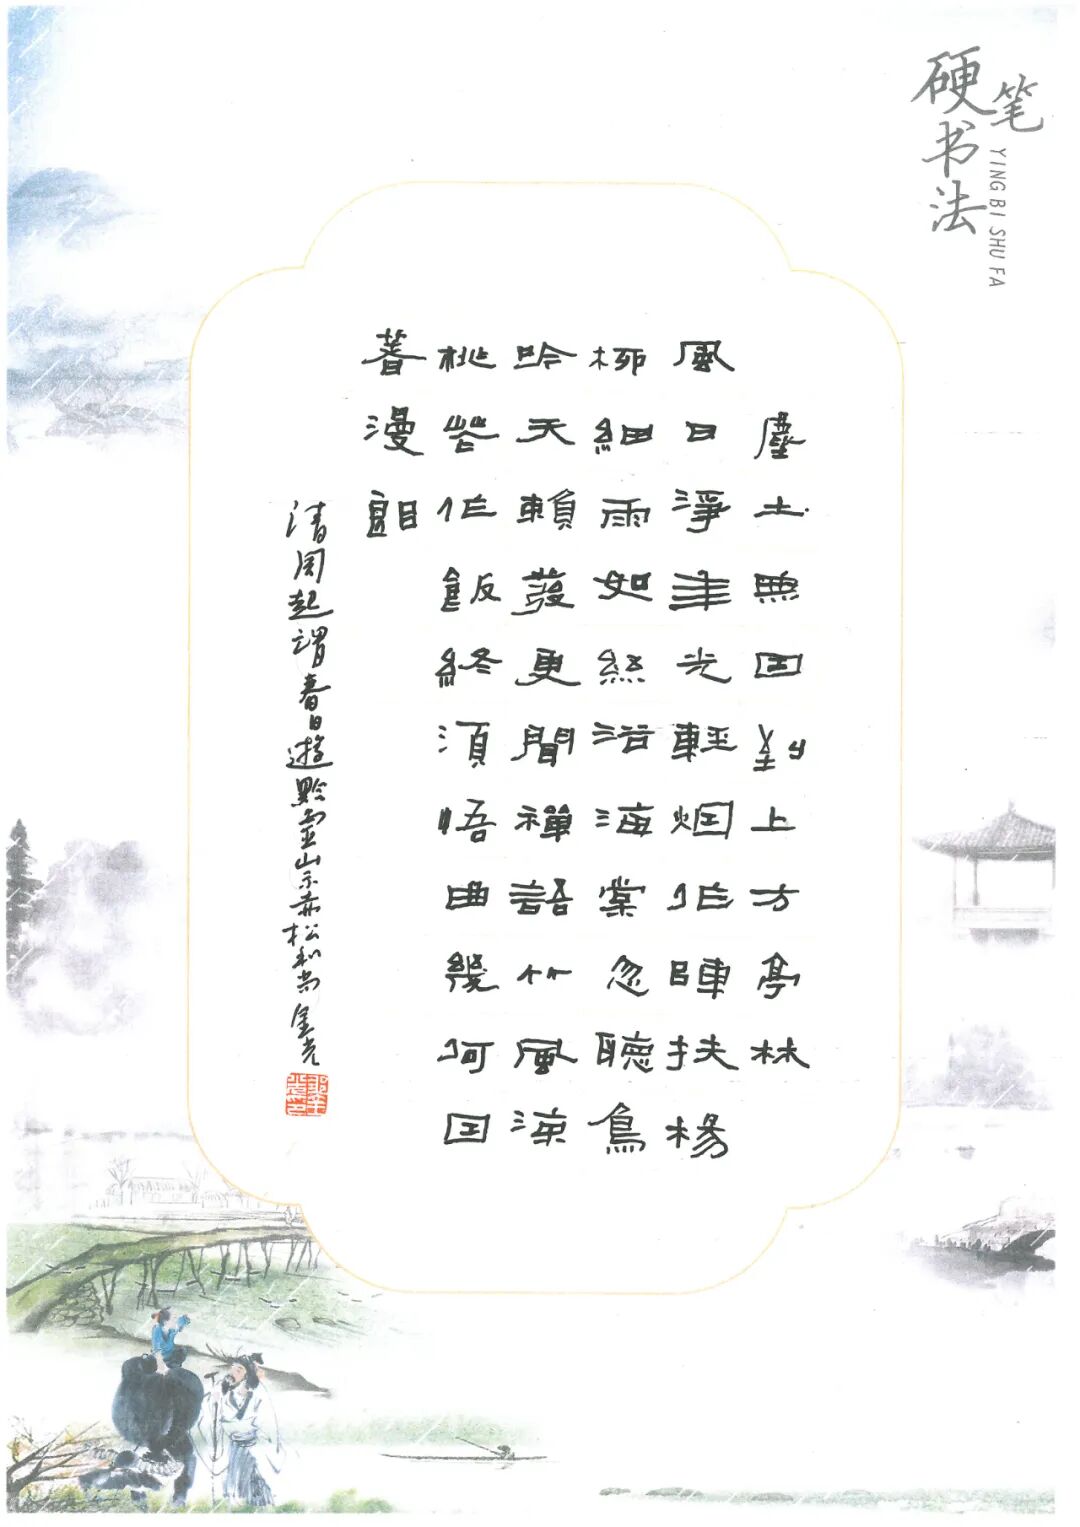 硬笔书法
YING BI SHU FA
塵土無因到上方亭林
風日淨年光輕烟作陣扶楊
柳細雨如絲浴海棠忽聽鳥
吟天賴發更聞禪語竹風涼
桃花作飯終須悟曲幾何因
著漫郎
清周起謂春日遊黔靈山示赤松和尚金光